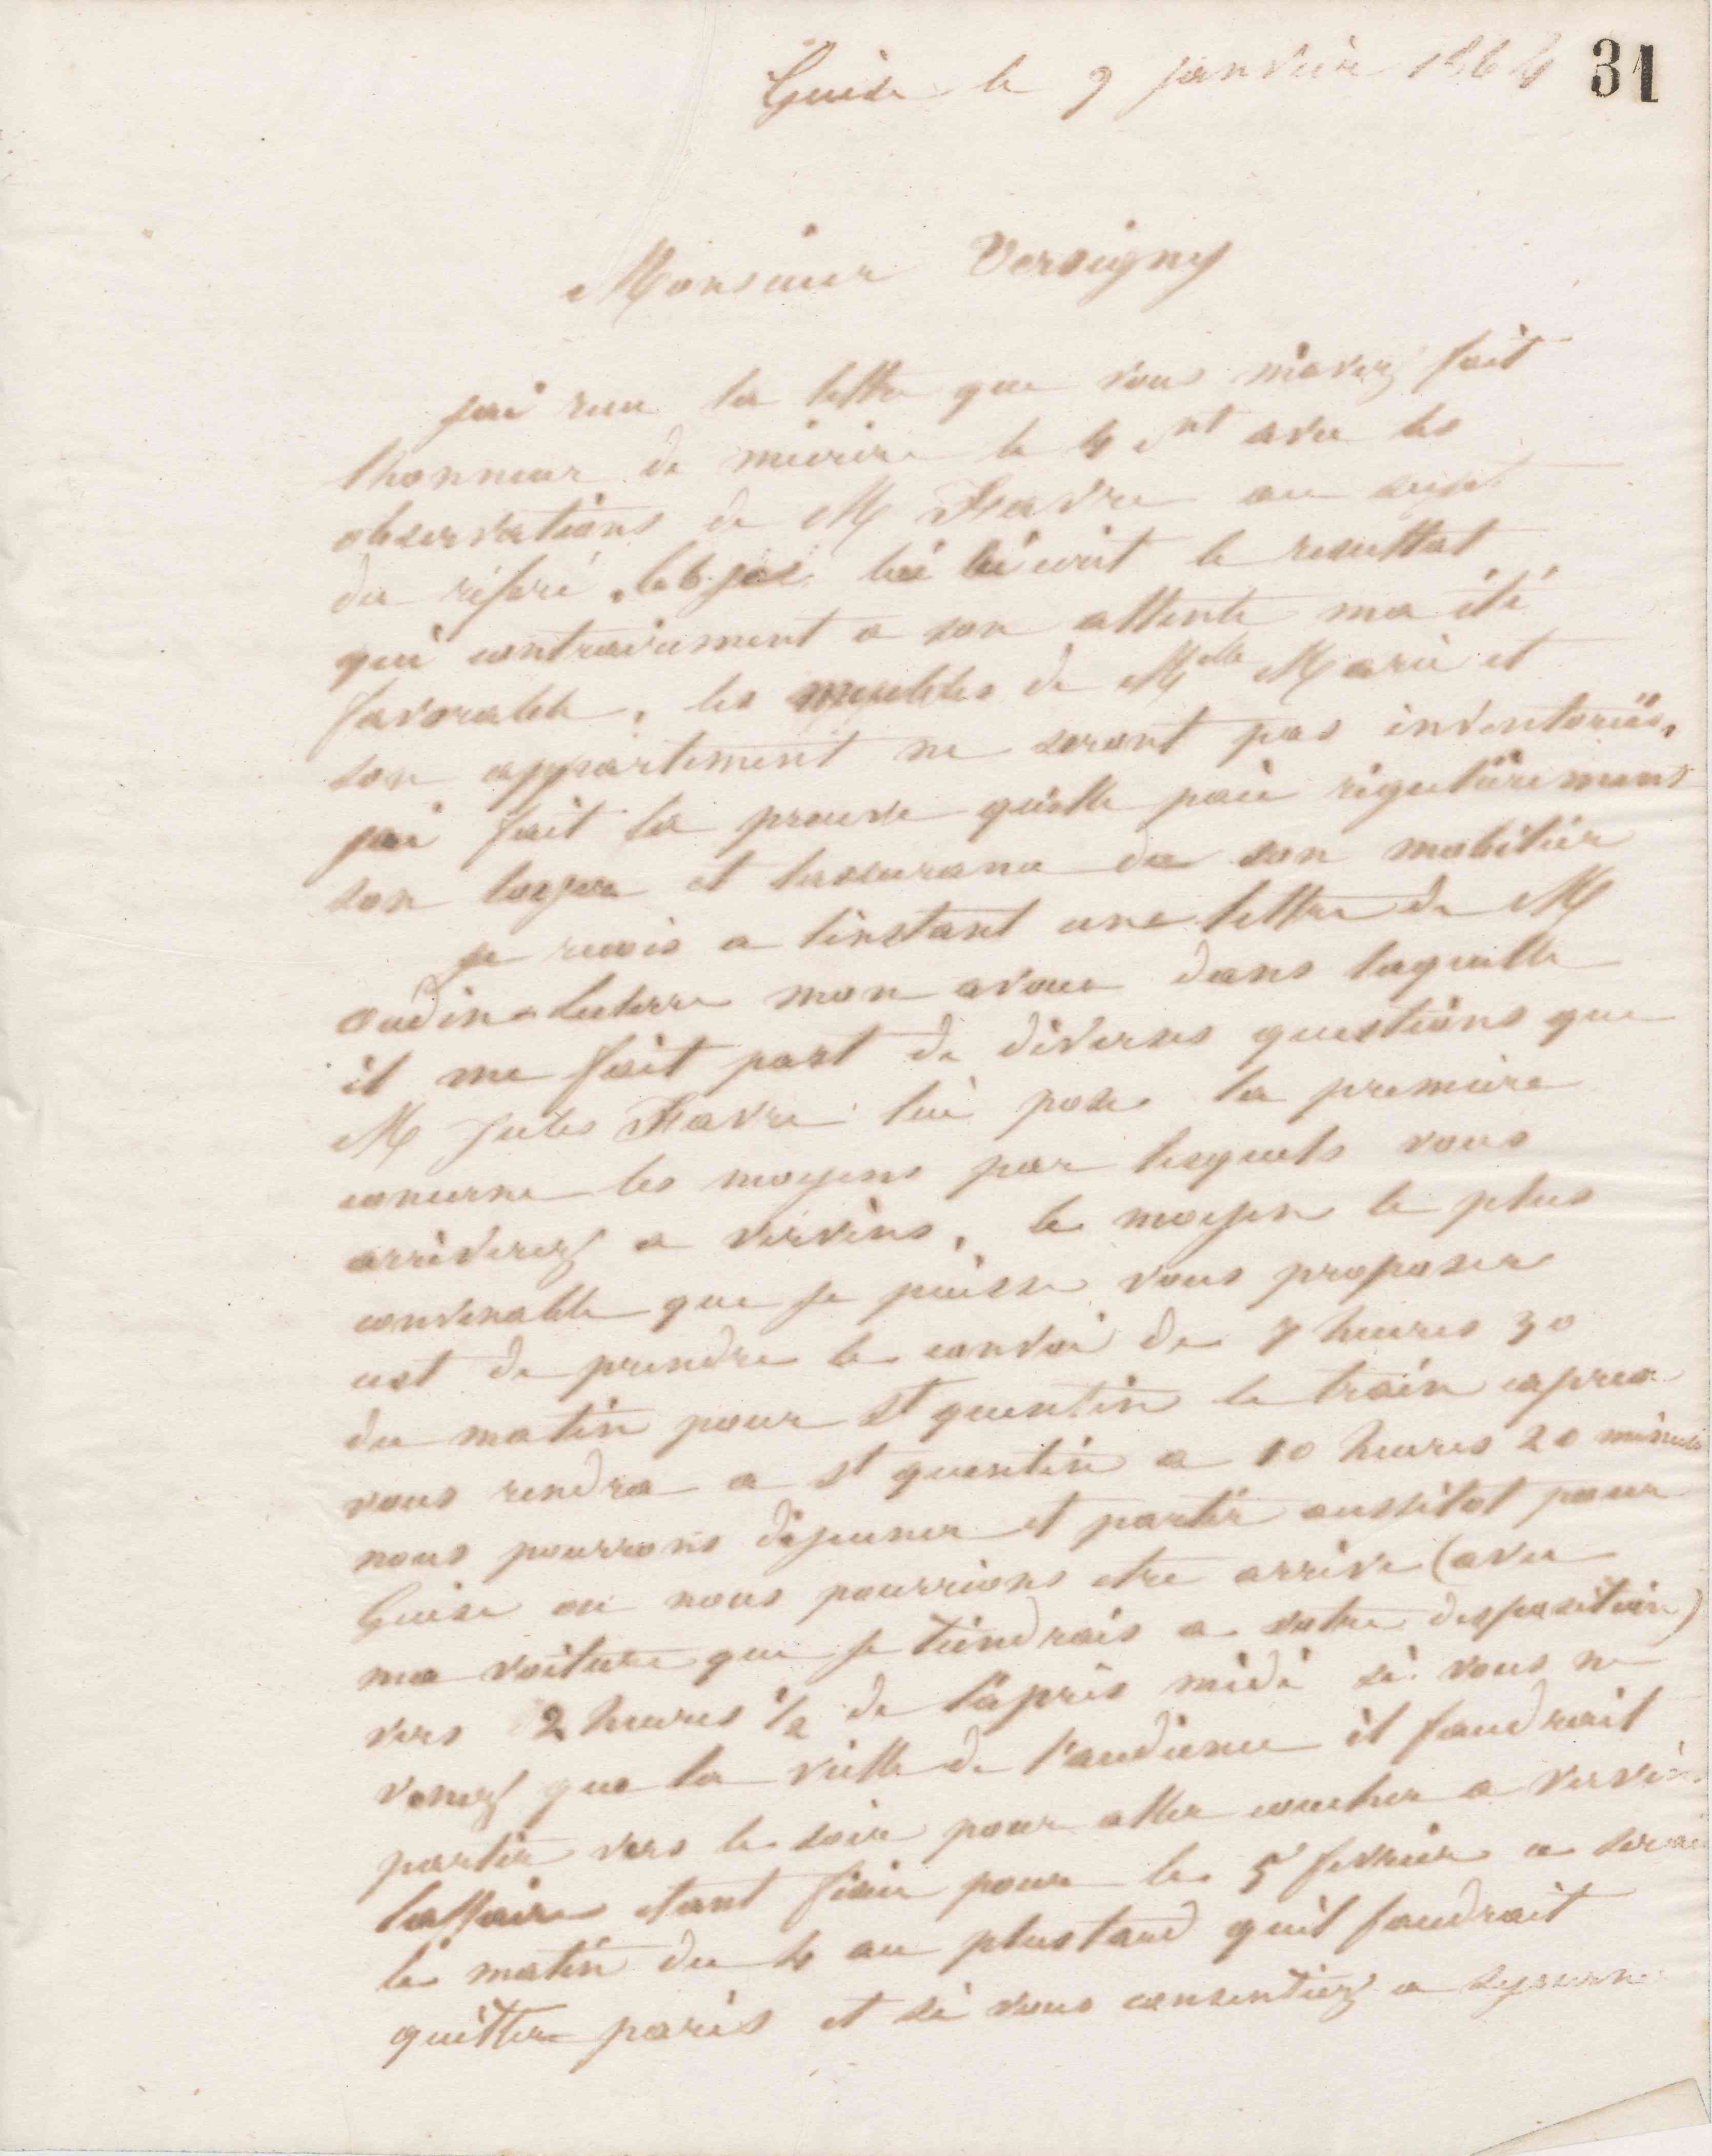 Guise le 9 janvier 1864 31
Monsieur Versigny
jai recu la lettre que vous m'avez fait
lhonneur de mécrire le 4 ct avec les
observations de M Favre au sujet
du référé, le 6 jai lui écrit le resultat
qui contrairement a son attente ma été
favorable, les meubles de Melle Marie et
son appartement ne seront pas inventoriés,
jai fait la preuve quelle paie régulièrement
son loyer et lassurance de son mobilier
je recois a linstant une lettre de M
oudin-Leclerre mon avoué dans laquelle
il me fait part de diverses questions que
M Jules Favre lui pose la premiere
concerne les moyens par lesquels vous
arriverez a vervins, le moyen le plus
convenable que je puisse vous proposer
est de prendre le convoi de 7 heures 30
du matin pour st quentin le train express
vous rendra a st quentin a 10 heures 20 minutes
nous pourrons déjeuner et partir aussitot pour
Guise ou nous pourrions etre arrivé (avec
ma voiture que je tiendrais a votre disposition)
vers 2 heures 1/2 de l'après midi si vous ne
venez que la veille de l'audience il faudrait
partir vers le soir pour aller coucher a vervins
laffaire etant fixée pour le 5 fevrier ce serait
le matin du 4 au plustard quil faudrait
quitter paris et si vous consentiez a